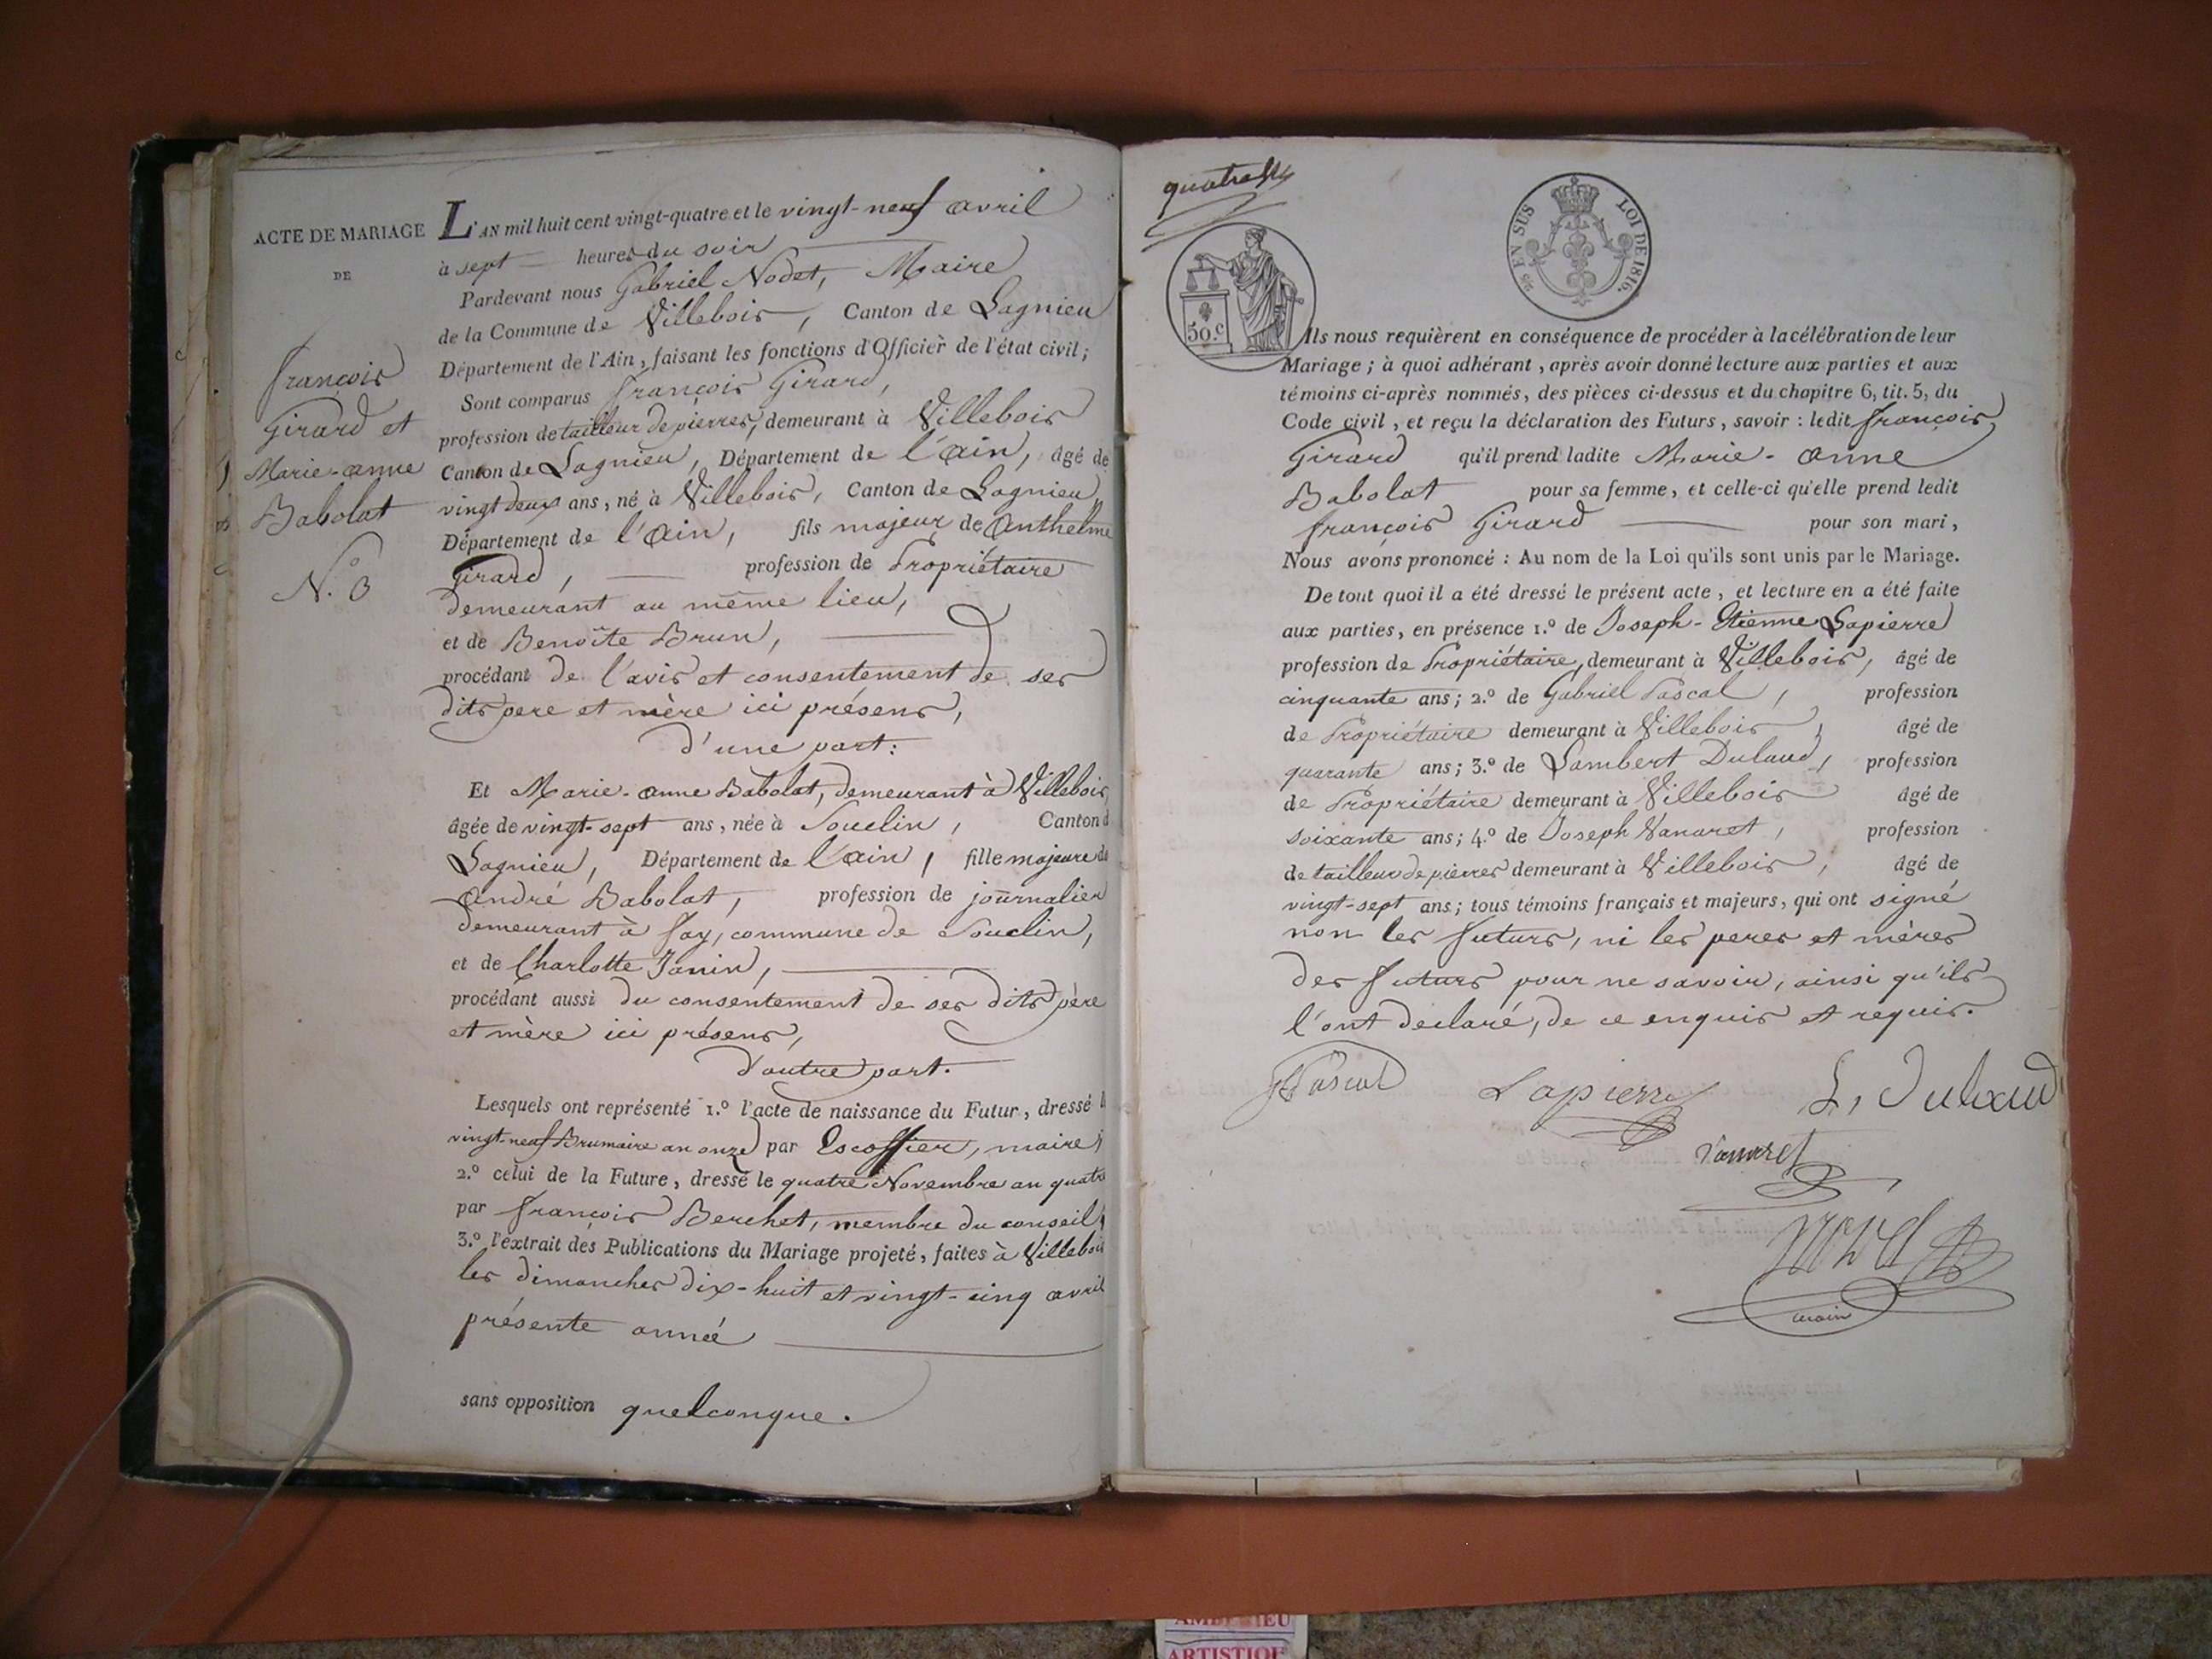 ACTE DE MARIAGE
DE
François
Girard et
Marie-anne
Babolat
N.° 3
L'AN mil huit cent vingt-quatre et le vingt-neuf avril
à sept heures du soir
Pardevant nous Gabriel Nodet, Maire
de la Commune de Villebois, Canton de Lagnieu
Département de l'Ain, faisant les fonctions d'Officier de l'état civil;
Sont comparus françois Girard,
profession de tailleur de pierres, demeurant à Villebois
Canton de Lagnieu, Département de l'ain, âgé de
vingt deux ans, né à Villebois, Canton de Lagnieu,
Département de l'ain, fils majeur de anthelme
Girard, profession de Propriétaire
demeurant au même lieu,
et de Benoîte Brun,
procédant de l'avis et consentement de ses
dits pere et mère ici présens,
d'une part:
Et Marie-anne Babolat, demeurant à Villebois,
âgée de vingt-sept ans, née à Souclin, Canton d
Lagnieu, Département de l'ain, fille majeure de
André Babolat, profession de journalier
demeurant à fay, commune de Souclin,
et de Charlotte Janin,
procédant aussi du consentement de ses dits père
et mère ici présens,
d'autre part.
Lesquels ont représenté 1.° l'acte de naissance du Futur, dressé l
vingt-neuf Brumaire an onze par Escoffier, maire;
2.° celui de la Future, dressé le quatre Novembre an quatre
par françois Berchet, membre du conseil;
3.° l'extrait des Publications du Mariage projeté, faites à Villebois
les dimanches dix-huit et vingt-cinq avril
présente année
sans opposition quelconque.
50.c
EN SUS
LOI DE 1816.
Ils nous requièrent en conséquence de procéder à la célébration de leur
Mariage; à quoi adhérant, après avoir donné lecture aux parties et aux
témoins ci-après nommés, des pièces ci-dessus et du chapitre 6, tit. 5, du
Code civil, et reçu la déclaration des Futurs, savoir: ledit françois
Girard qu'il prend ladite Marie-anne
Babolat pour sa femme, et celle-ci qu'elle prend ledit
françois Girard pour son mari,
Nous avons prononcé: Au nom de la Loi qu'ils sont unis par le Mariage.
De tout quoi il a été dressé le présent acte, et lecture en a été faite
aux parties, en présence 1.° de Joseph-Etienne Lapierre
profession de Propriétaire, demeurant à Villebois, âgé de
cinquante ans; 2.° de Gabriel Pascal, profession
de Propriétaire demeurant à Villebois, âgé de
quarante ans; 3.° de Lambert Dulaud, profession
de Propriétaire demeurant à Villebois âgé de
soixante ans; 4.° de Joseph Vanaret, profession
de tailleur de pierres demeurant à Villebois, âgé de
vingt-sept ans; tous témoins français et majeurs, qui ont signé
non les futurs, ni les peres et mères
des futurs pour ne savoir, ainsi qu'ils
l'ont declaré, de ce enquis et requis.
G Pascal
Lapierre
L. Dulaud
Vanaret
Nodet
maire
ARTISTIQUE